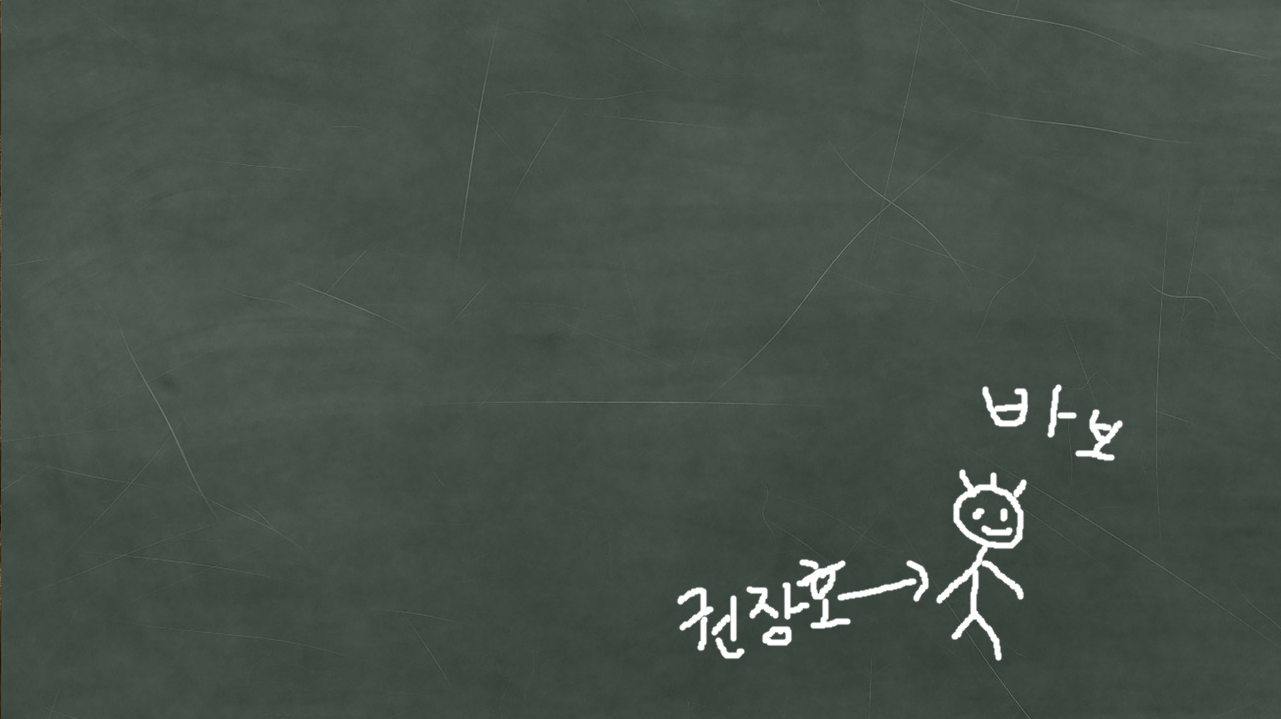 바보
권장호